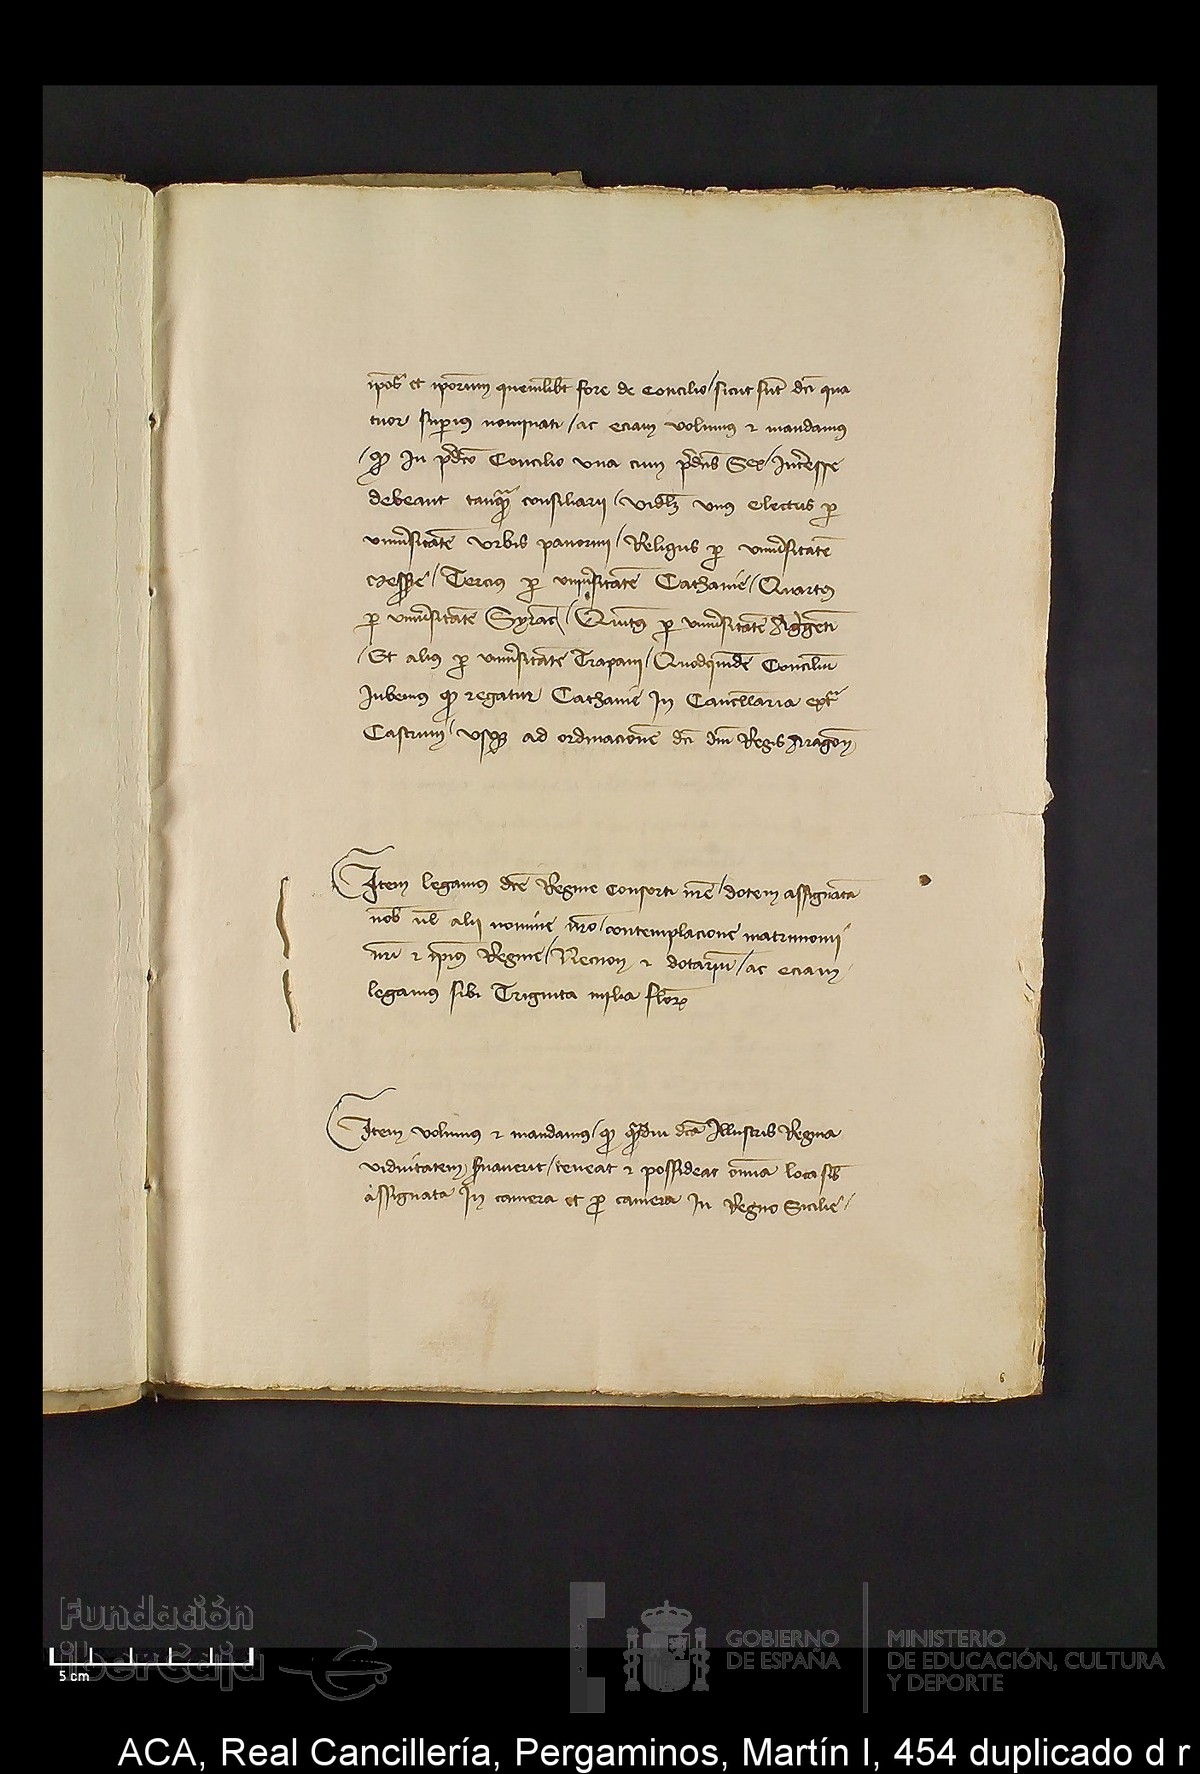 ip̄os et ip̄orum quemlibꝫ fore de Concilio / sicut sunt dc̄i qua
tuor superius nominati / ac eciam volumus ⁊ mandamus
/ qȝ In p̄dc̄o Concilio vna cum p̄dc̄is Sex / Interesse
debeant tanqȝ consiliarii / vidlꝫ vnus electus ꝑ
vniu̾sitatē vrbis panormi / Religus ꝑ vniu̾sitatē
Messane / Tercius ꝑ vniu̾sitatē Cathanie / Quartus
ꝑ vniu̾sitatē Syrac̄ / Quintus ꝑ vniu̾sitatē Ag̾genti
/ Et alius ꝑ vniu̾sitatē Trapani / Quodquidē Conciliū
Jubemus qȝ regatur Cathanie In Cancellaria ext̄
Castrum / vsqȝ ad ordinacionē dc̄i dn̄i Regis Aragon̄
Item legamus dc̄e Regine Consorti nr̄e / dotem assignata
nob̄ ul̄ alii nomine nr̄o / contemplacione matrimonii
nr̄i ⁊ ip̄ius Regine / Necnon ⁊ dotariū / ac eciam
legamus sibi Triginta milia flor̄
Item volumus ⁊ mandamus / qȝ qᵃmdiu dc̄a Illustris Regina
viduitatem s̾uauerit / teneat ⁊ possideat om̄ia loca sibi
assignata In camera et ꝓ camera In Regno Sicilie /
6
Fundación
iberCaja
5 cm
GOBIERNO
DE ESPAÑA
MINISTERIO
DE EDUCACIÓN, CULTURA
Y DEPORTE
ACA, Real Cancillería, Pergaminos, Martín I, 454 duplicado d r